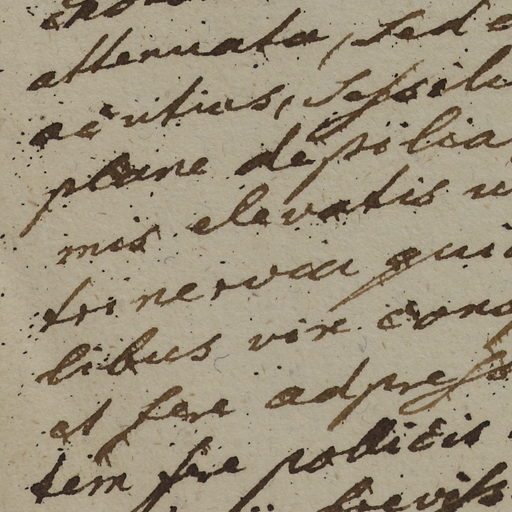 attenuata, sed
acutius, sessil
plane depilia
mis elevatis
trinervia qui
libus vix con
et fere adpress
tem fere pollicis
brevis